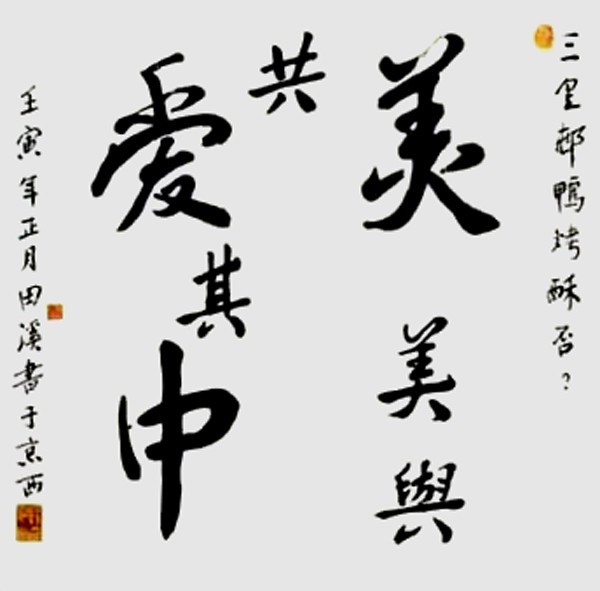 三里邨鴨烤酥否？
美美與
共爱其中
壬寅年正月田溪書于京西